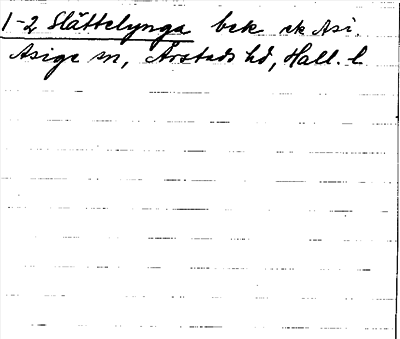 1-2 Slättelynga bek ek Asi.
Asige sn, Årstads hd, Hall. l